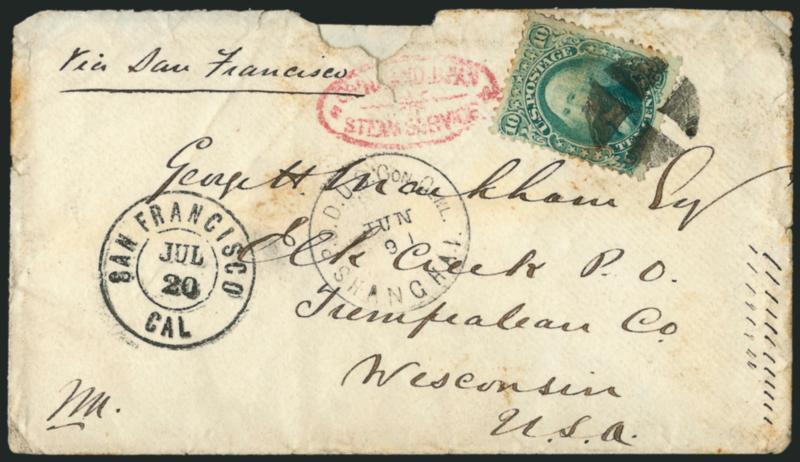 Via San Francisco
CHINA AND JAPAN
STEAM SERVICE
10
U.S. POSTAGE
10
George H. Markham Esq
Elk Creek P.O.
Trempealeau Co.
Wisconsin
U.S.A.
SAN FRANCISCO
JUL
20
CAL
U.S. CON. GENL.
JUN
SHANGHAI.